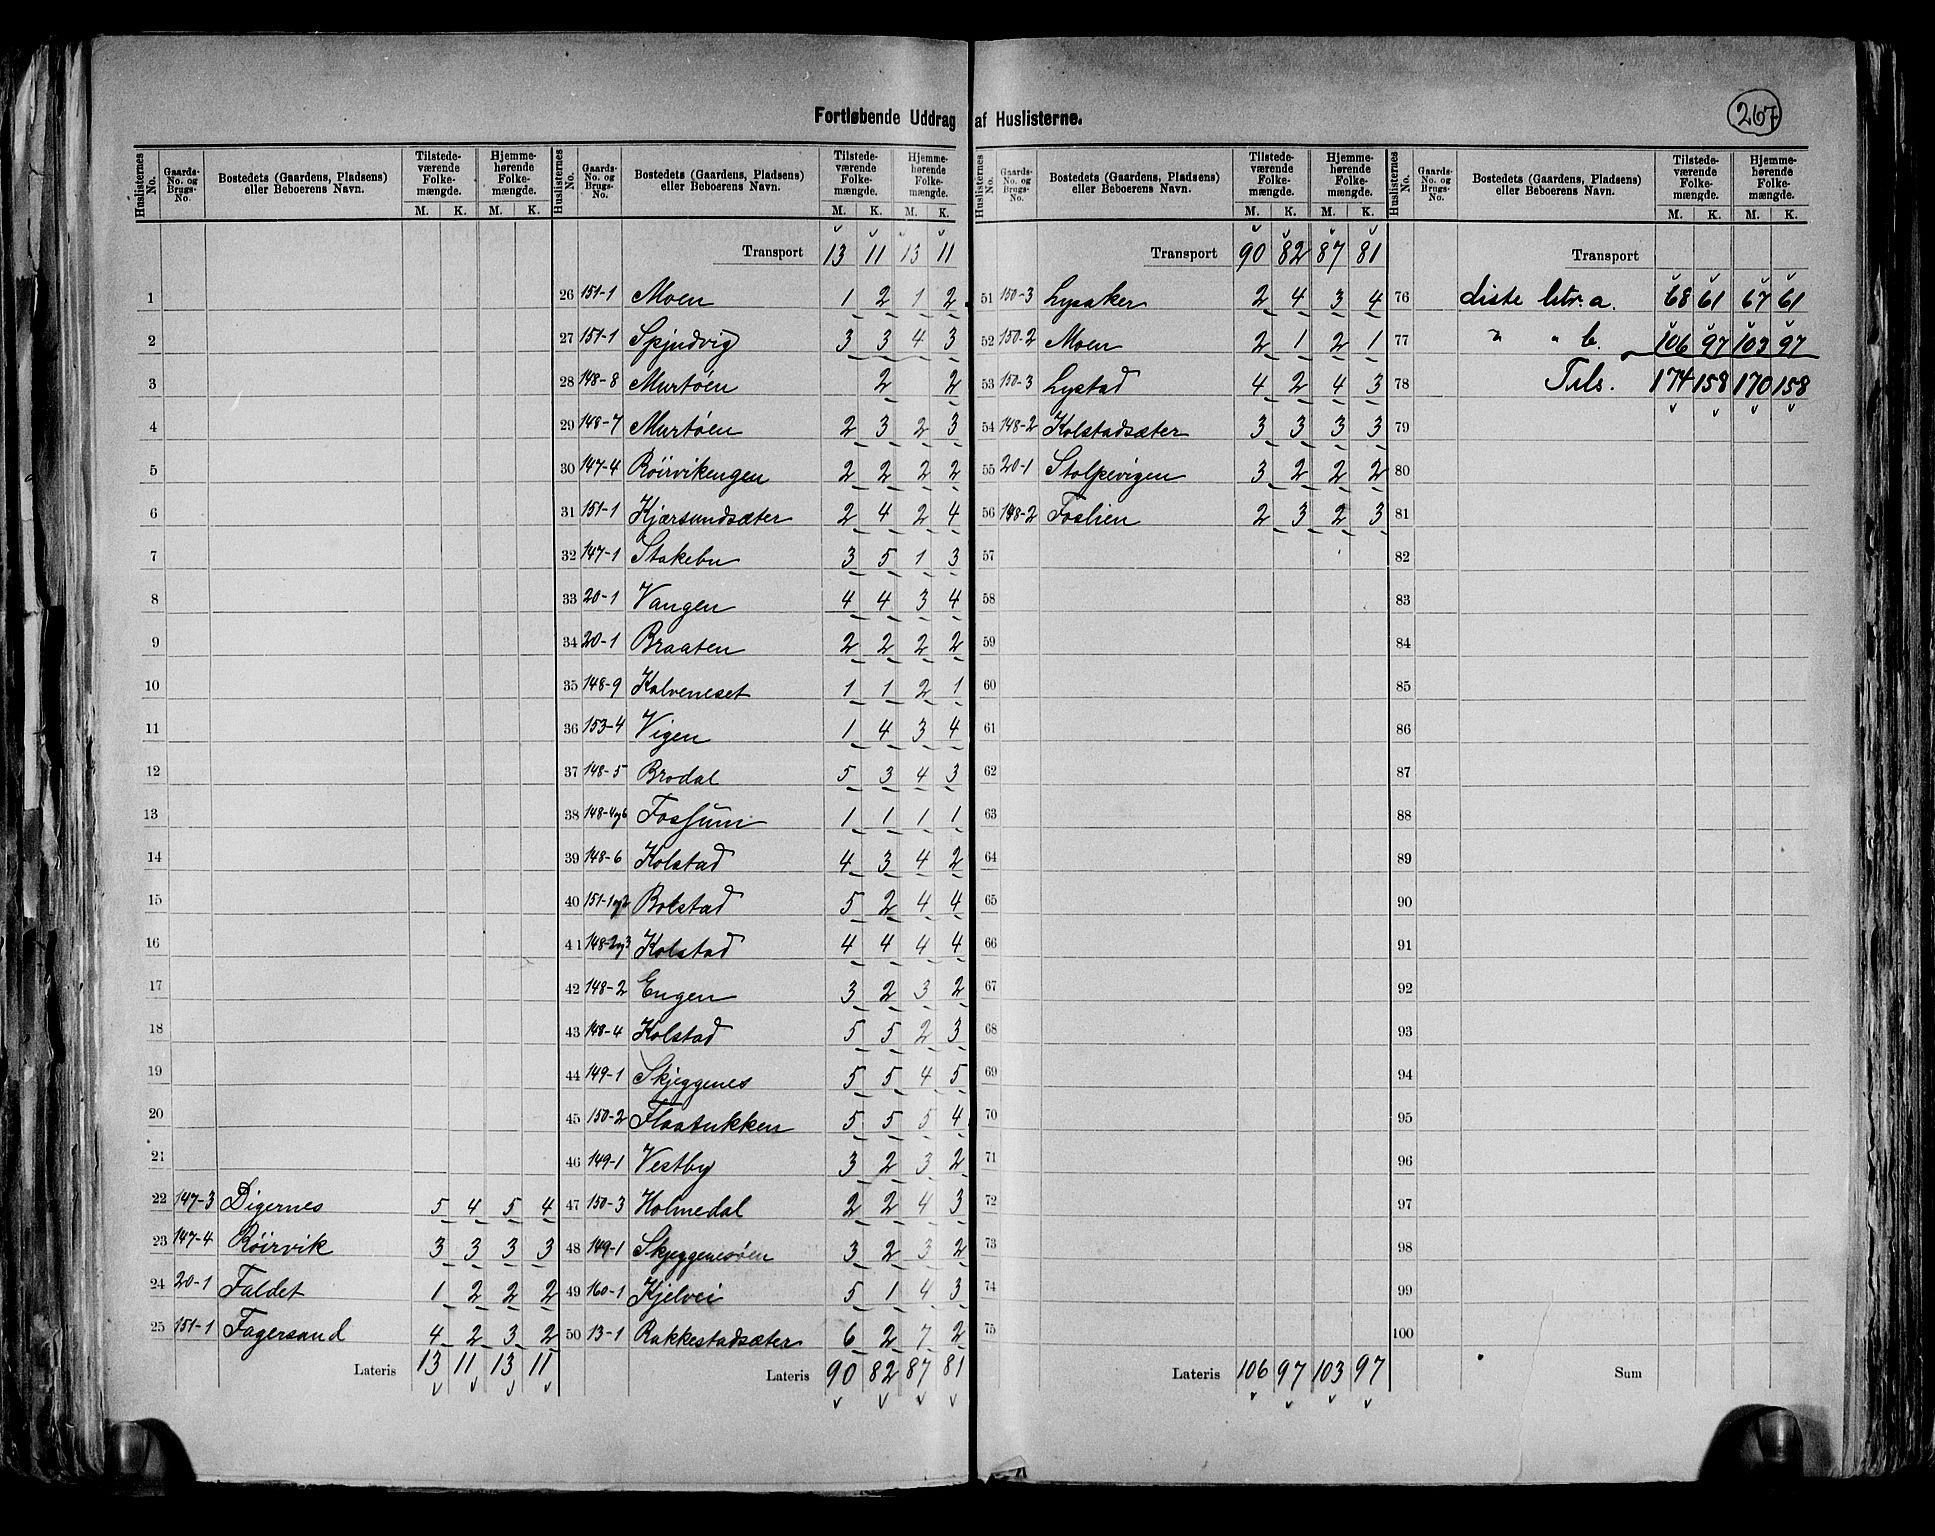 Fortløbende Uddrag af Huslisterne.
267
Huslisternes No. | Gaards-No. og Brugs-No. | Bostedets (Gaardens, Pladsens) eller Beboerens Navn. | Tilstedeværende Folkemængde. M. K. | Hjemmehørende Folkemængde. M. K.
1
2
3
4
5
6
7
8
9
10
11
12
13
14
15
16
17
18
19
20
21
22 147-3 Digernes 5 4 5 4
23 147-4 Röirvik 3 3 3 3
24 20-1 Faldet 1 2 2 2
25 151-1 Fagersand 4 2 3 2
Lateris 13 11 13 11
Huslisternes No. | Gaards-No. og Brugs-No. | Bostedets (Gaardens, Pladsens) eller Beboerens Navn. | Tilstedeværende Folkemængde. M. K. | Hjemmehørende Folkemængde. M. K.
Transport 13 11 13 11
26 151-1 Moen 1 2 1 2
27 151-1 Spjudvig 3 3 4 3
28 148-8 Murtöen 2 2
29 148-7 Murtöen 2 3 2 3
30 147-4 Röirvikengen 2 2 2 2
31 151-1 Kjærsundsæter 2 4 2 4
32 147-1 Stakebu 3 5 1 3
33 20-1 Vangen 4 4 3 4
34 20-1 Braaten 2 2 2 2
35 148-9 Kalveneset 1 1 2 1
36 153-4 Vigen 1 4 3 4
37 148-5 Brodal 5 3 4 3
38 148-4og6 Fossum 1 1 1 1
39 148-6 Kolstad 4 3 4 2
40 151-1og2 Bolstad 5 2 4 4
41 148-2og3 Kolstad 4 4 4 4
42 148-2 Engen 3 2 3 2
43 148-4 Kolstad 5 5 2 3
44 149-1 Skjeggenes 5 5 4 5
45 150-2 Flaatukken 5 5 5 4
46 149-1 Vestby 3 2 3 2
47 150-3 Holmedal 2 2 4 3
48 149-1 Skjeggenesöen 3 2 3 2
49 160-1 Kjelvei 5 1 4 3
50 13-1 Rakkestadsæter 6 2 7 2
Lateris 90 82 87 81
Huslisternes No. | Gaards-No. og Brugs-No. | Bostedets (Gaardens, Pladsens) eller Beboerens Navn. | Tilstedeværende Folkemængde. M. K. | Hjemmehørende Folkemængde. M. K.
Transport 90 82 87 81
51 150-3 Lysaker 2 4 3 4
52 150-2 Moen 2 1 2 1
53 150-3 Lystad 4 2 4 3
54 148-2 Kolstadsæter 3 3 3 3
55 20-1 Stolpevigen 3 2 2 2
56 148-2 Foslien 2 3 2 3
57
58
59
60
61
62
63
64
65
66
67
68
69
70
71
72
73
74
75
Lateris 106 97 103 97
Huslisternes No. | Gaards-No. og Brugs-No. | Bostedets (Gaardens, Pladsens) eller Beboerens Navn. | Tilstedeværende Folkemængde. M. K. | Hjemmehørende Folkemængde. M. K.
Transport
76 Liste litr. a. 68 61 67 61
77 " " b. 106 97 103 97
78 Tils. 174 158 170 158
79
80
81
82
83
84
85
86
87
88
89
90
91
92
93
94
95
96
97
98
99
100
Sum